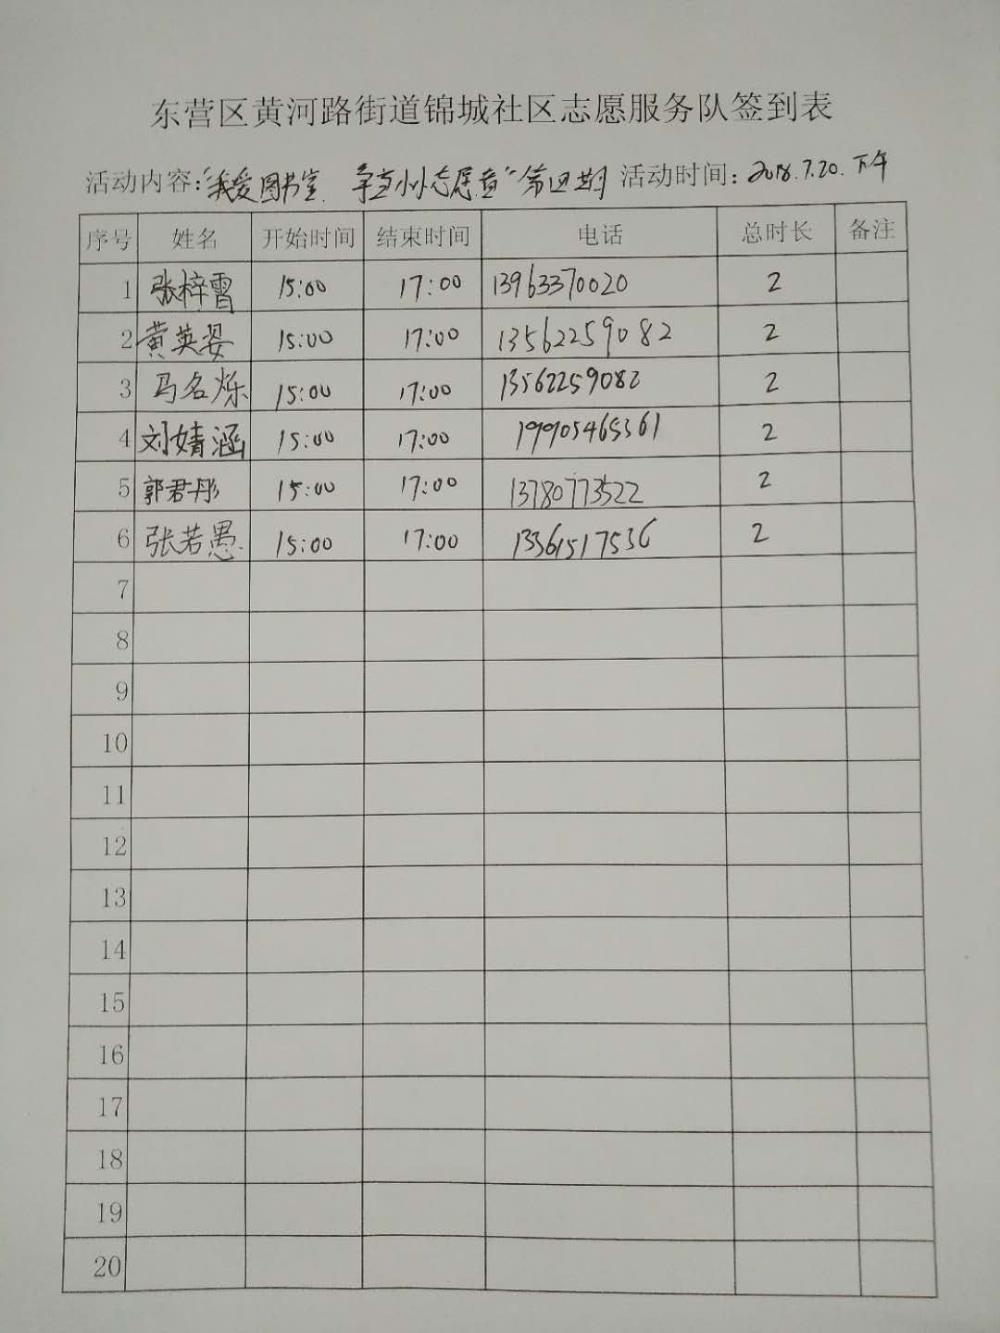 东营区黄河路街道锦城社区志愿服务队签到表
活动内容:“我爱图书室 争当小小志愿者”第四期 活动时间:2018.7.20.下午
序号 姓名 开始时间 结束时间 电话 总时长 备注
1 张梓霄 15:00 17:00 13963370020 2
2 黄英姿 15:00 17:00 13562259082 2
3 马名烁 15:00 17:00 13562259082 2
4 刘婧涵 15:00 17:00 19905465361 2
5 郭君彤 15:00 17:00 13780773522 2
6 张若愚 15:00 17:00 13361517536 2
7
8
9
10
11
12
13
14
15
16
17
18
19
20